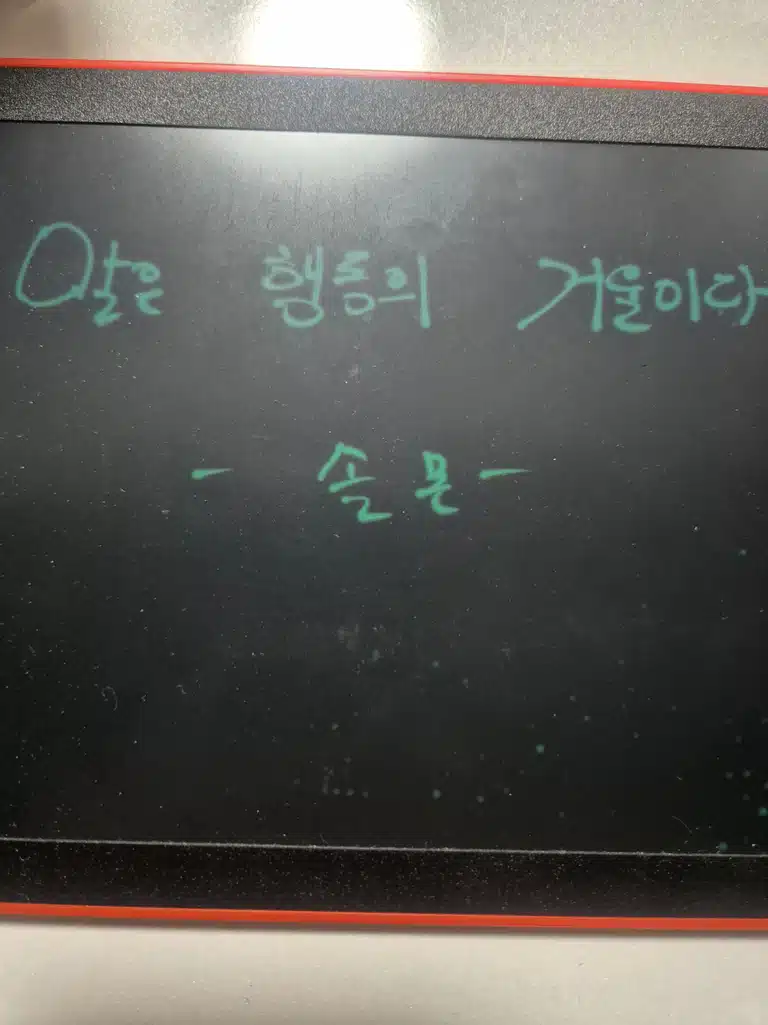 말은 행동의 거울이다
- 솔론 -